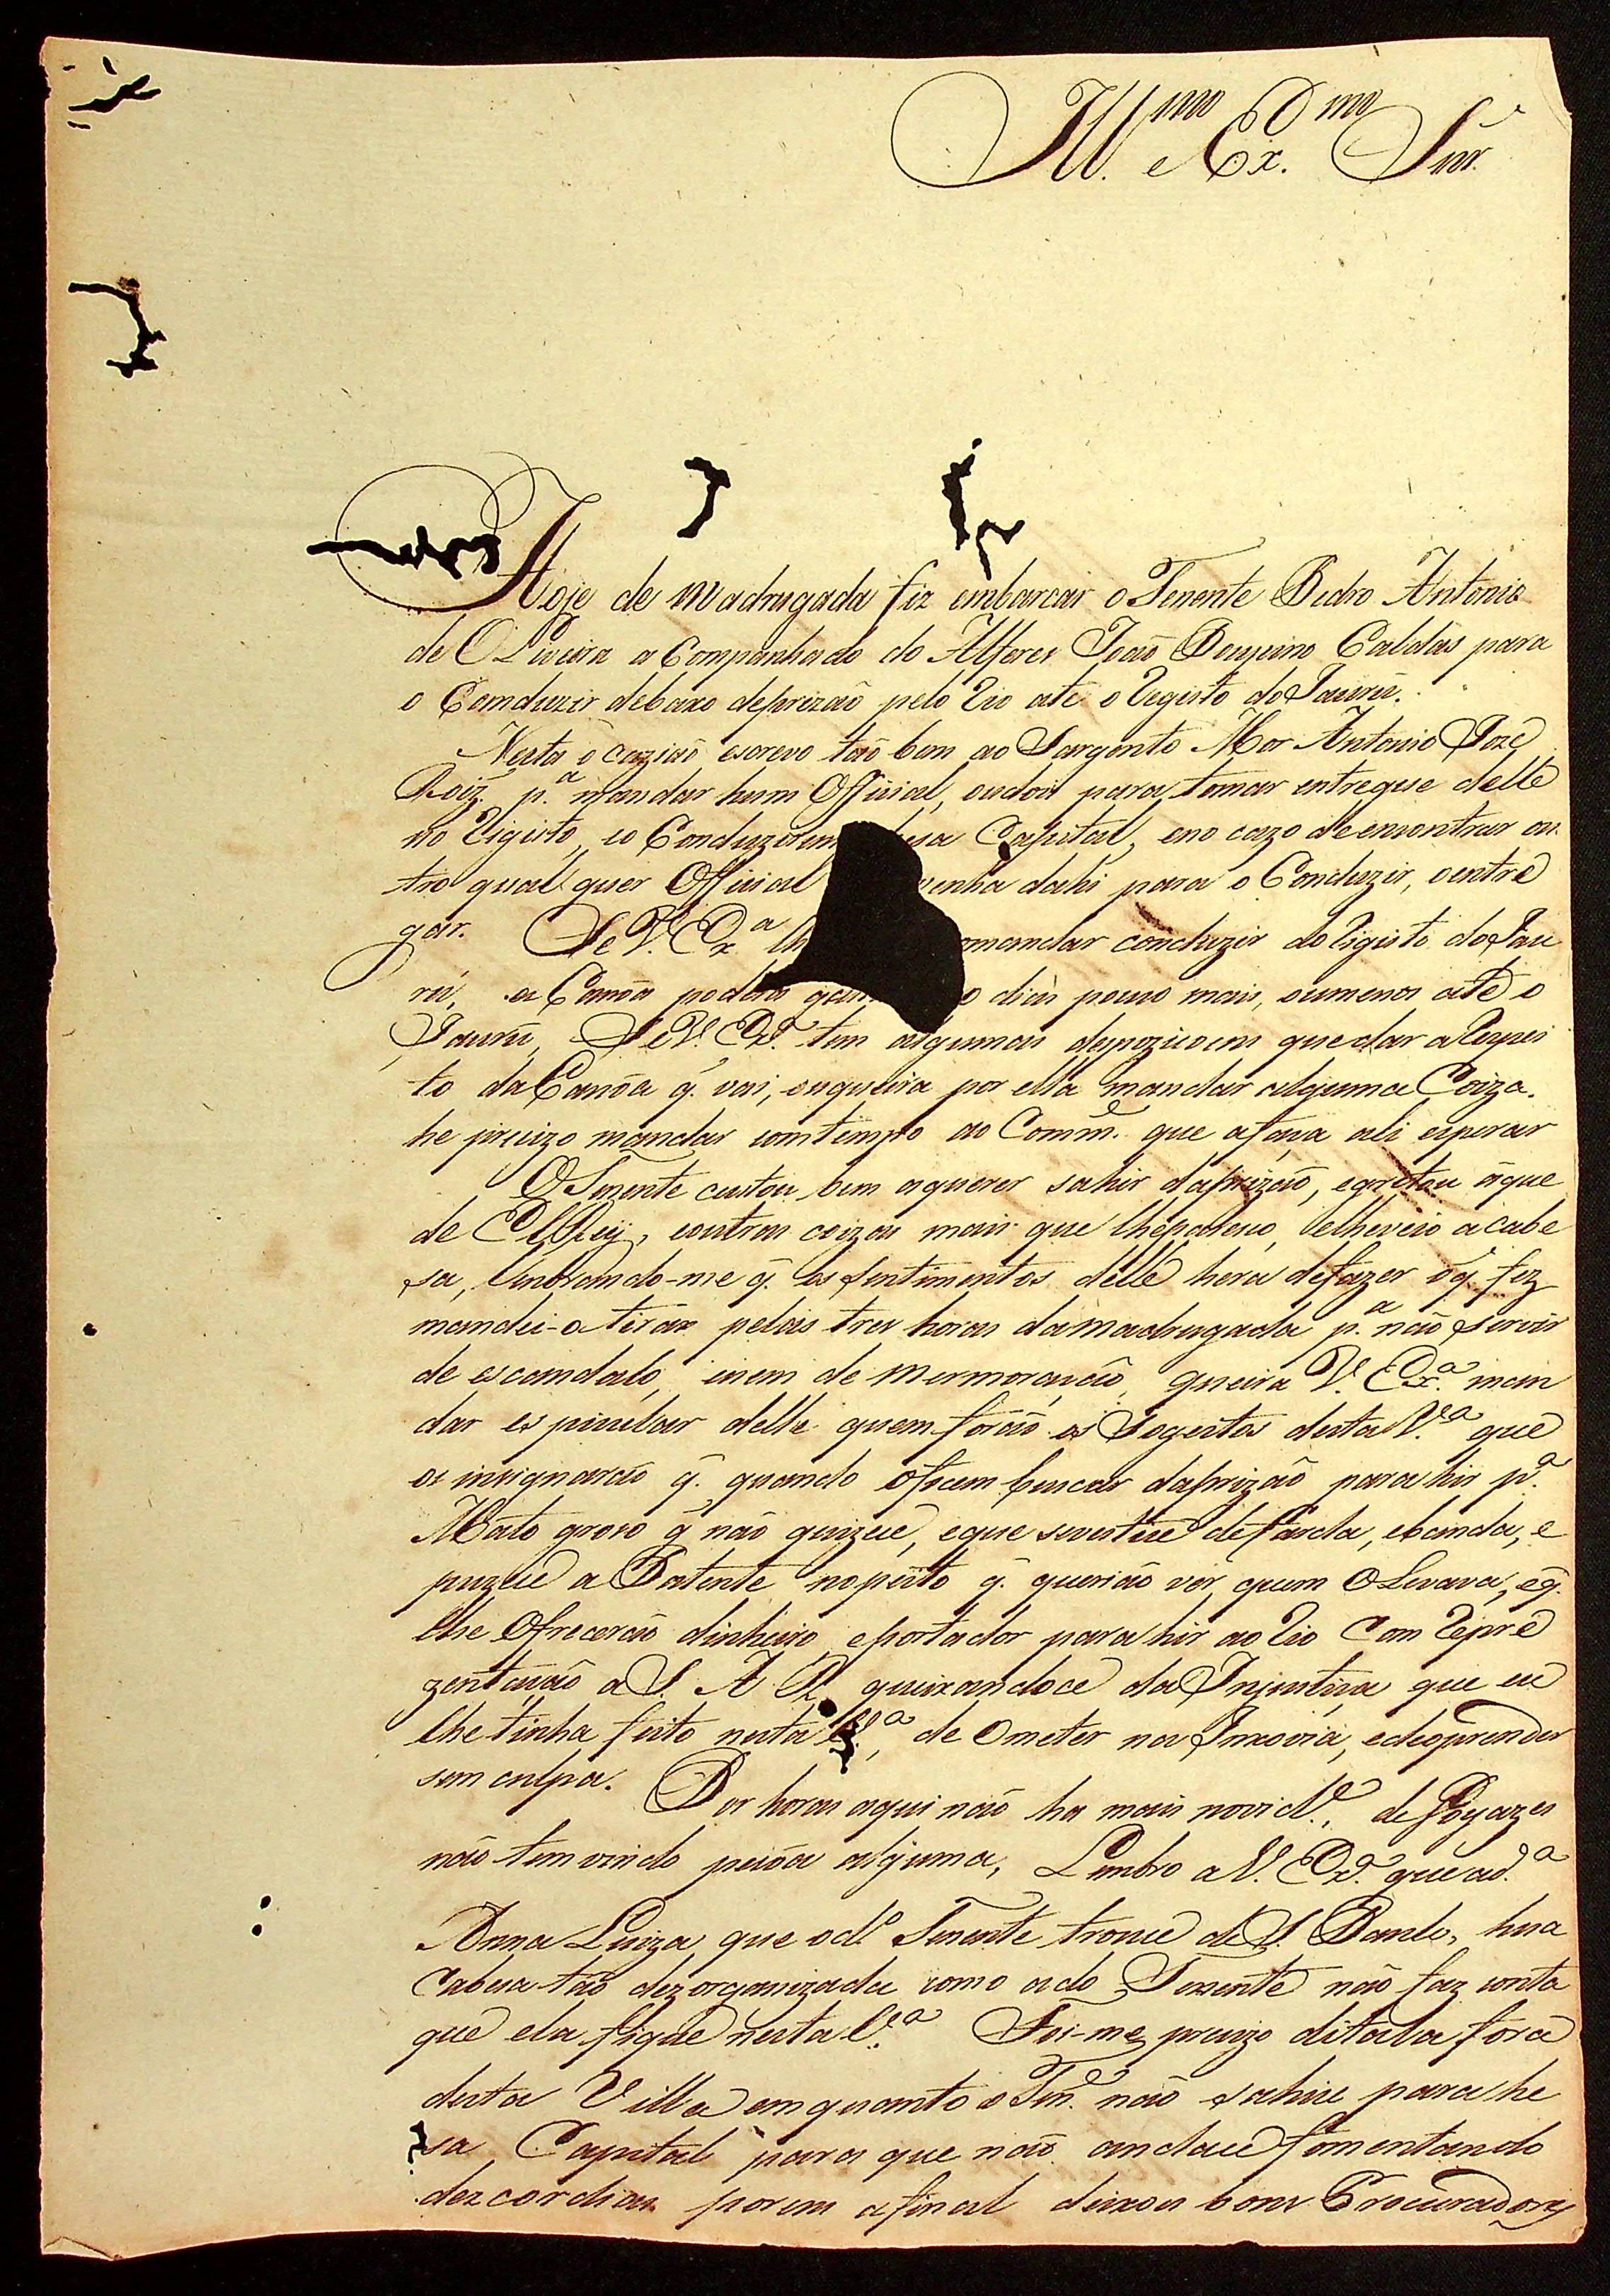 Ill.mo e Ex.mo Snr.
Hoje de madrugada fiz embarcar o Tenente Pedro Antonio
de OLiveira a Companhado do Alferes João Caldas para
o Comduzir debaxo deprizaõ pelo Rio atê o Registo do Jaurú.
Nesta ôcaziaõ escrevo taõ bem ao Sargento Mor Antonio Joze
Roiz' p.ª mandar hum Official, oudois para tomar entregue delle
no Rigisto, eo Conduzirem sa Capital, eno cazo de encontrar ou
tro qual quer Official venha dahi para o Conduzir, oentre
gar. Se V. Ex.ª lh omandar conduzir do Rigisto do Jau
rú, a Canôa poderá gas o dias pouco mais, oumenos atê o
Jaurú, Se V. Ex.ª tem algumas dispozicoins que dar a Respei
to da Canôa q̃ vai, ouqueira por ella mandar alguma Coiza.
he precizo mandar comtempo ao Comm.e que afaça ali esperar
O Tenente custou bem aquerer sahir daprizaõ, egritou âque
de ElRey, eoutras coizas mais que lhepareceo, elheveio acabe
sa, Lembrando-me q̃ os sentimentos delle hera defazer oq̃ fez
mandei-o tirar pelas tres horas damadrugada p.ª naõ servir
de escandalo, enem de murmoraçaõ, queira V. Ex.ª man
dar espicular delle quem foraõ os Sogeitos desta V.ª que
o insignaraõ q̃ quando ofocem buscar daprizaõ para hir p.ª
Mato groso q̃ naõ quizece, eque sevestice defarda, ebanda, e
puzece a Patente nopeito q̃ queriaõ ver quem OLevava, eq̃
lhe Ofreceraõ dinheiro, eportador para hir ao Rio Com Repre
zentaçaõ a S. A. R. queixandoce da Injustiça que eu
lhe tinha feito nesta V.ª, de Ometer na Inxovia, edeoprender
sem culpa. Por horas aqui naõ ha mais novid.e, de Goyazes
naõ tem vindo pecôa alguma, Lembro a V. Ex.ª que ad.ª
Anna Luiza que od.o Tenente trouce de S. Paulo, hua
Cabeca taõ dezorganizada como ado Tenente naõ faz conta
que ela fique nesta V.ª Foi-me precizo ditala fora
desta Villa emquanto o Ten.e naõ sahice para he
sa Capital para que naõ andace fomentando
dezcordias porem afinal deixou bons Procuradores